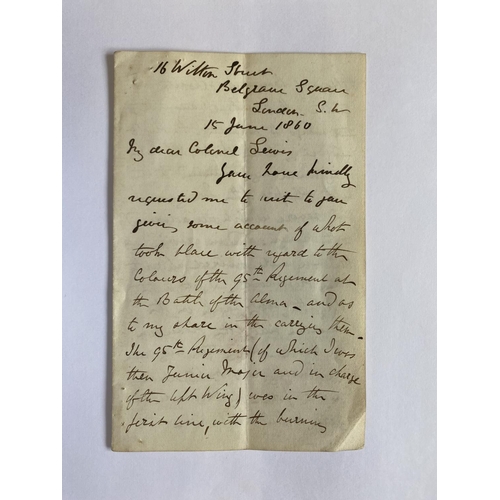 16 Wilton Street
Belgrave Square
London. S.W
15 June 1860
My dear Colonel Lewis
You have kindly
requested me to write to you
giving some account of what
took place with regard to the
Colours of the 95th Regiment at
the Battle of the Alma - and as
to my share in the carrying them.
The 95th Regiment (of which I was
then Junior Major and in charge
of the left Wing) was in the
first line, with the burning